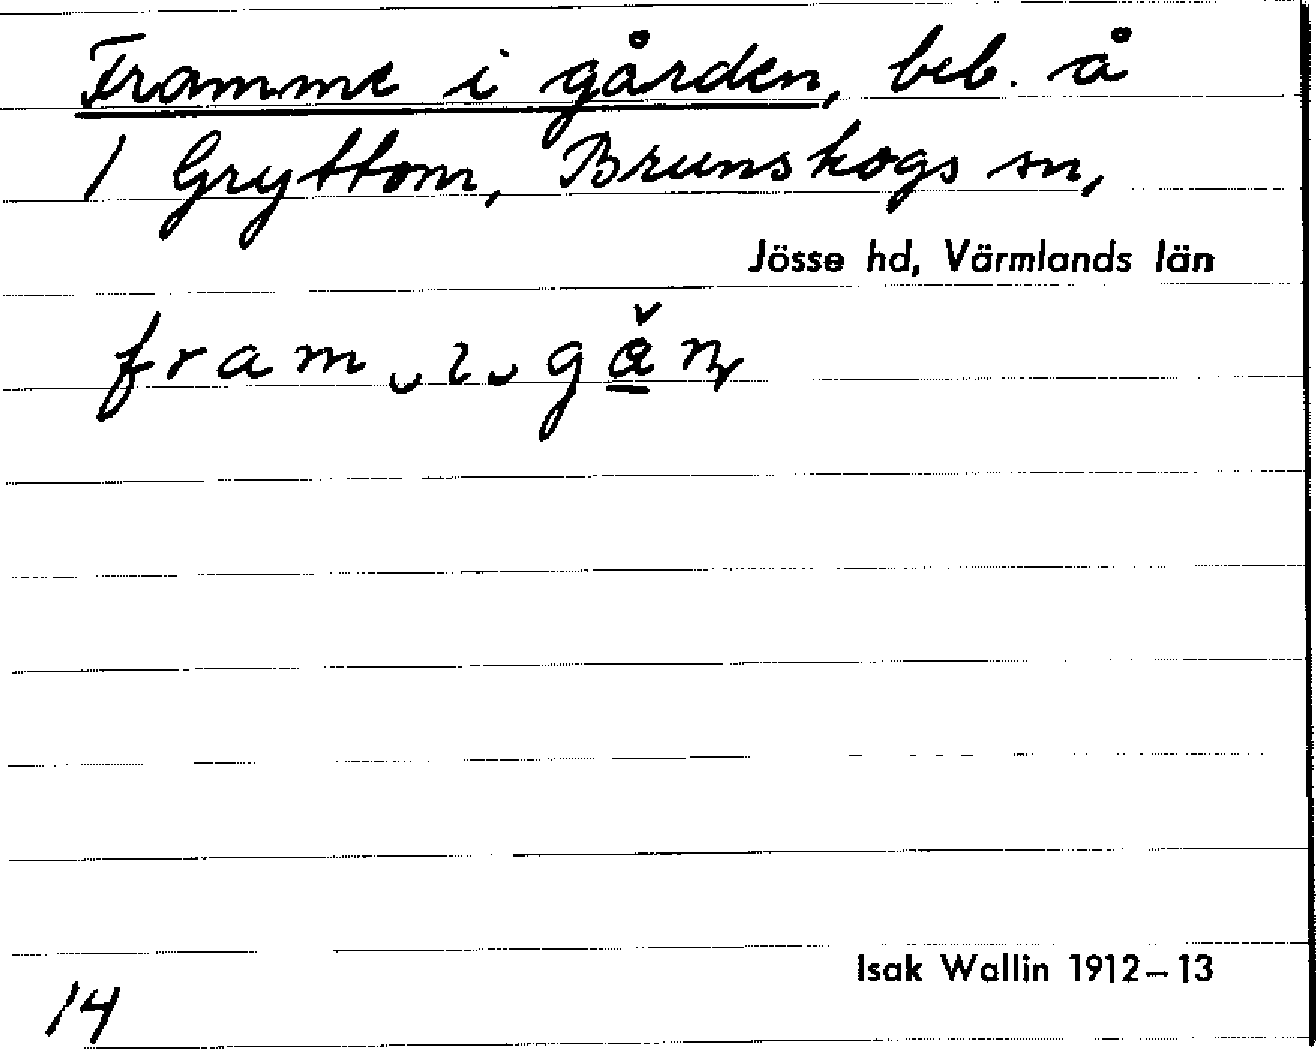 Framme i gården, beb. å
1 Gryttom, Brunskogs sn,
Jösse hd, Värmlands län
fram ̮ı ̮gǎ̱n̥
Isak Wallin 1912–13
14